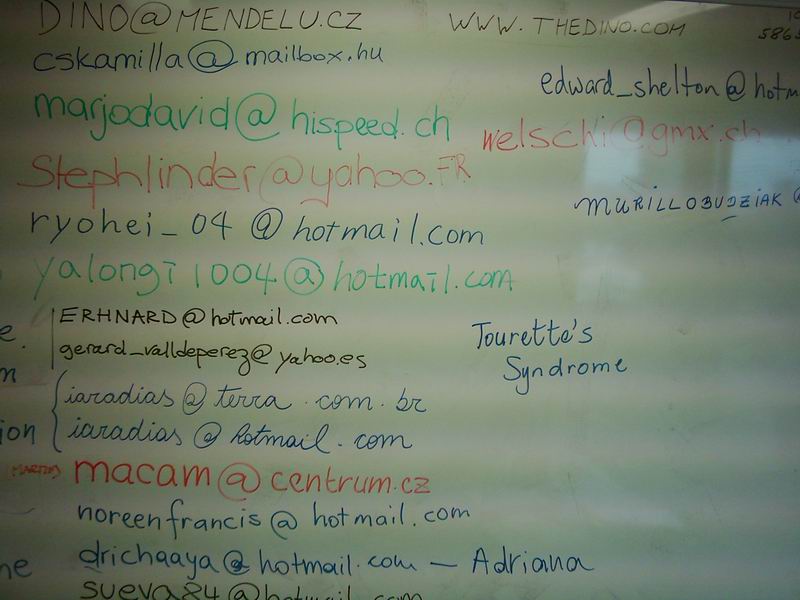 DINO@MENDELU.CZ
WWW.THEDINO.COM
cskamilla@mailbox.hu
edward_shelton@hotm
marjodavid@hispeed.ch
welschi@gmx.ch
Stephlinder@yahoo.FR
MURILLOBUDZIAK @
ryohei_04@hotmail.com
yalongi1004@hotmail.com
ERHNARD@hotmail.com
gerard_valldeperez@yahoo.es
Tourette's
Syndrome
iaradias@terra.com.br
iaradias@hotmail.com
(MARTIN) macam@centrum.cz
noreenfrancis@hotmail.com
drichaaya@hotmail.com — Adriana
sueva84@hotmail.com